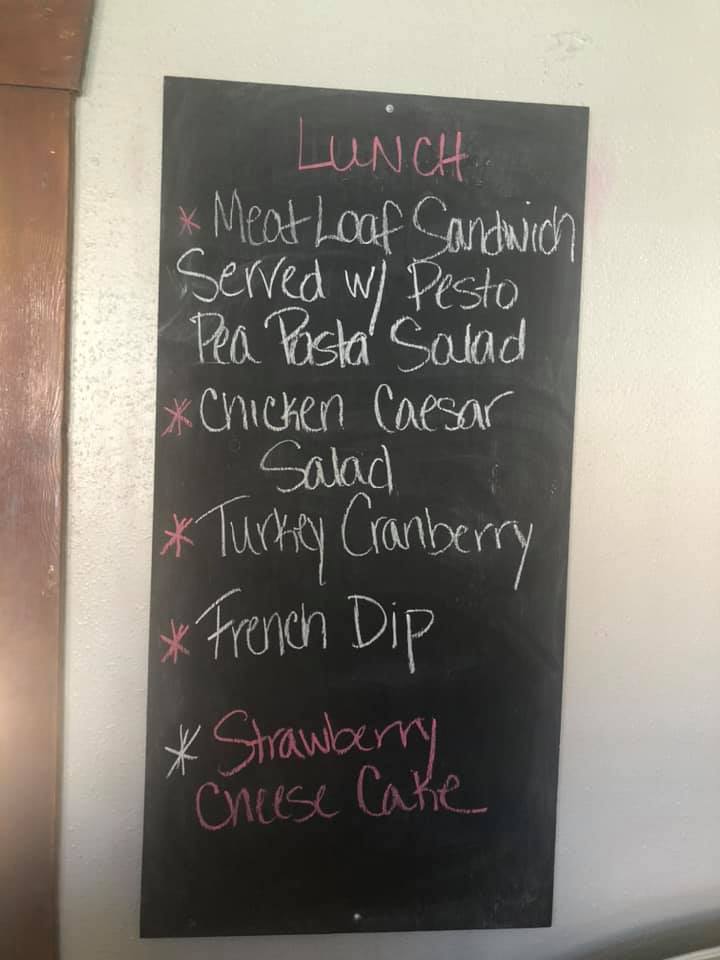 LUNCH
* Meat Loaf Sandwich
Served w/ Pesto
Pea Pasta Salad
* Chicken Caesar
Salad
* Turkey Cranberry
* French Dip
* Strawberry
Cheese Cake